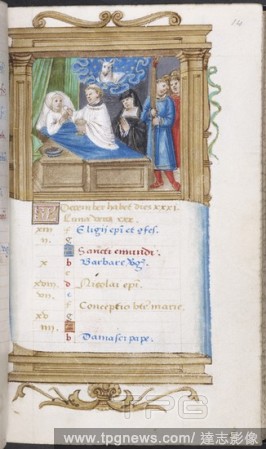 14
December habet dies xxxi.
Luna vero xxx.
xiii f Eligii epi et cfes.
ii g
A Sancti emundi.
x b Barbare Vg.
c
xviii d Nicolai epi.
vii e
f Conceptio bte marie.
xv g
iiii A
b Damasci pape.
TPG
www.tpgnews.com / 達志影像